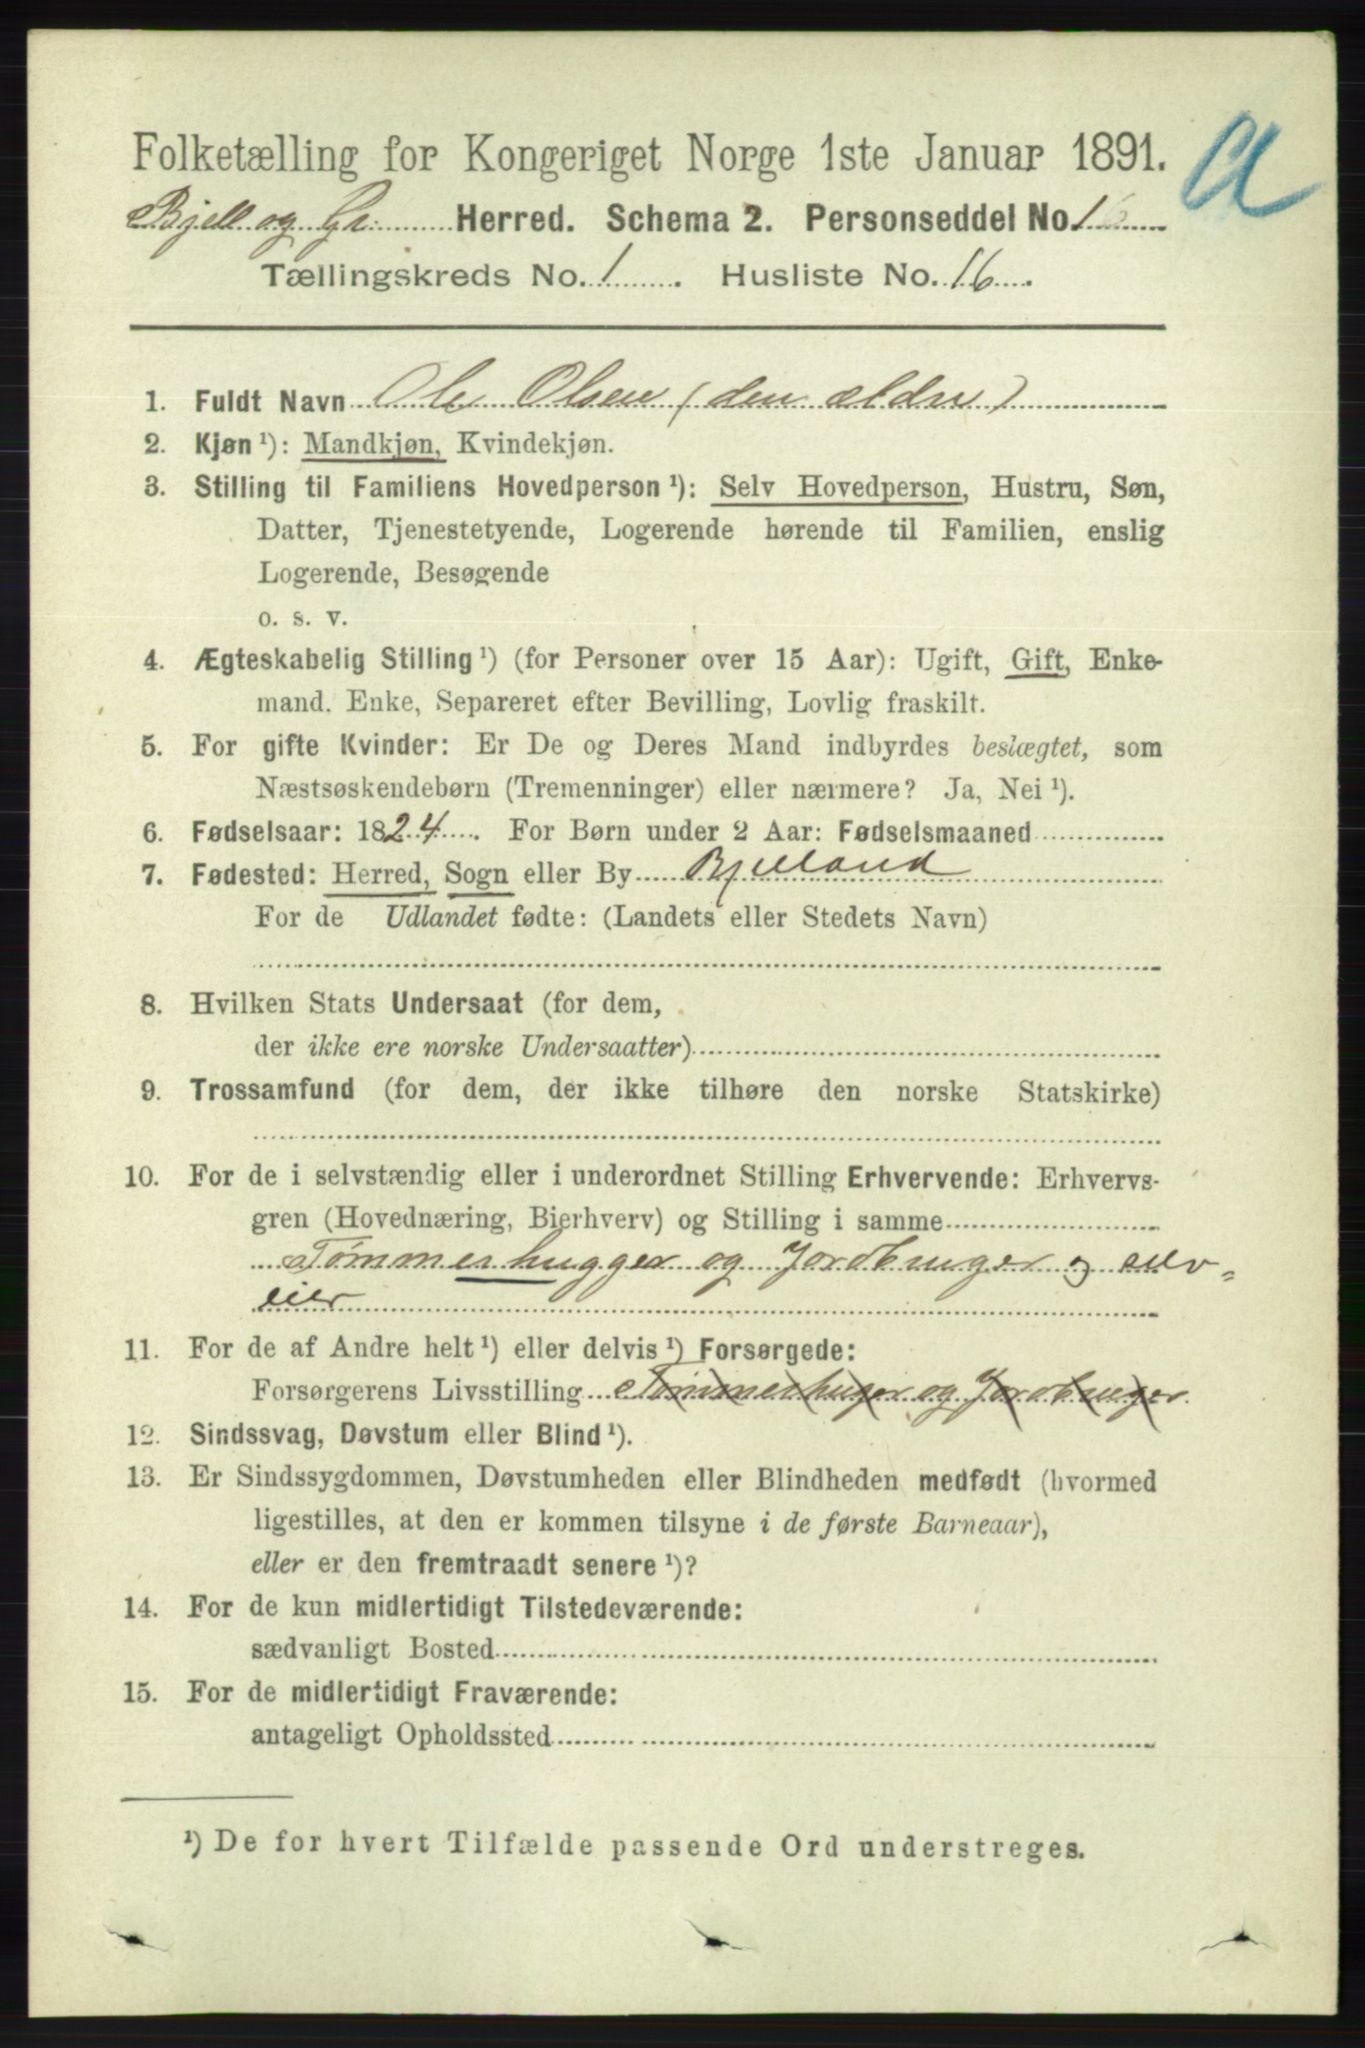 Folketælling for Kongeriget Norge 1ste Januar 1891.
Bjell og Gr. Herred. Schema 2. Personseddel No. 1
Tællingskreds No. 1. Husliste No. 16.
1. Fuldt Navn Ole Olsen (den ældre)
2. Kjøn ¹): Mandkjøn, Kvindekjøn.
3. Stilling til Familiens Hovedperson ¹): Selv Hovedperson, Hustru, Søn,
Datter, Tjenestetyende, Logerende hørende til Familien, enslig
Logerende, Besøgende
o. s. v.
4. Ægteskabelig Stilling ¹) (for Personer over 15 Aar): Ugift, Gift, Enke-
mand, Enke, Separeret efter Bevilling, Lovlig fraskilt.
5. For gifte Kvinder: Er De og Deres Mand indbyrdes beslægtet, som
Næstsøskendebørn (Tremenninger) eller nærmere? Ja, Nei ¹).
6. Fødselsaar: 1824. For Børn under 2 Aar: Fødselsmaaned
7. Fødested: Herred, Sogn eller By Bjelland
For de Udlandet fødte: (Landets eller Stedets Navn)
8. Hvilken Stats Undersaat (for dem,
der ikke ere norske Undersaatter)
9. Trossamfund (for dem, der ikke tilhøre den norske Statskirke)
10. For de i selvstændig eller i underordnet Stilling Erhvervende: Erhvervs-
gren (Hovednæring, Bierhverv) og Stilling i samme
Tømmerhugger og Jordbruger og selv-
eier
11. For de af Andre helt ¹) eller delvis ¹) Forsørgede:
Forsørgerens Livsstilling Tømmerhuger og Jordbruger.
12. Sindssvag, Døvstum eller Blind ¹).
13. Er Sindssygdommen, Døvstumheden eller Blindheden medfødt (hvormed
ligestilles, at den er kommen tilsyne i de første Barneaar),
eller er den fremtraadt senere ¹)?
14. For de kun midlertidigt Tilstedeværende:
sædvanligt Bosted
15. For de midlertidigt Fraværende:
antageligt Opholdssted
¹) De for hvert Tilfælde passende Ord understreges.